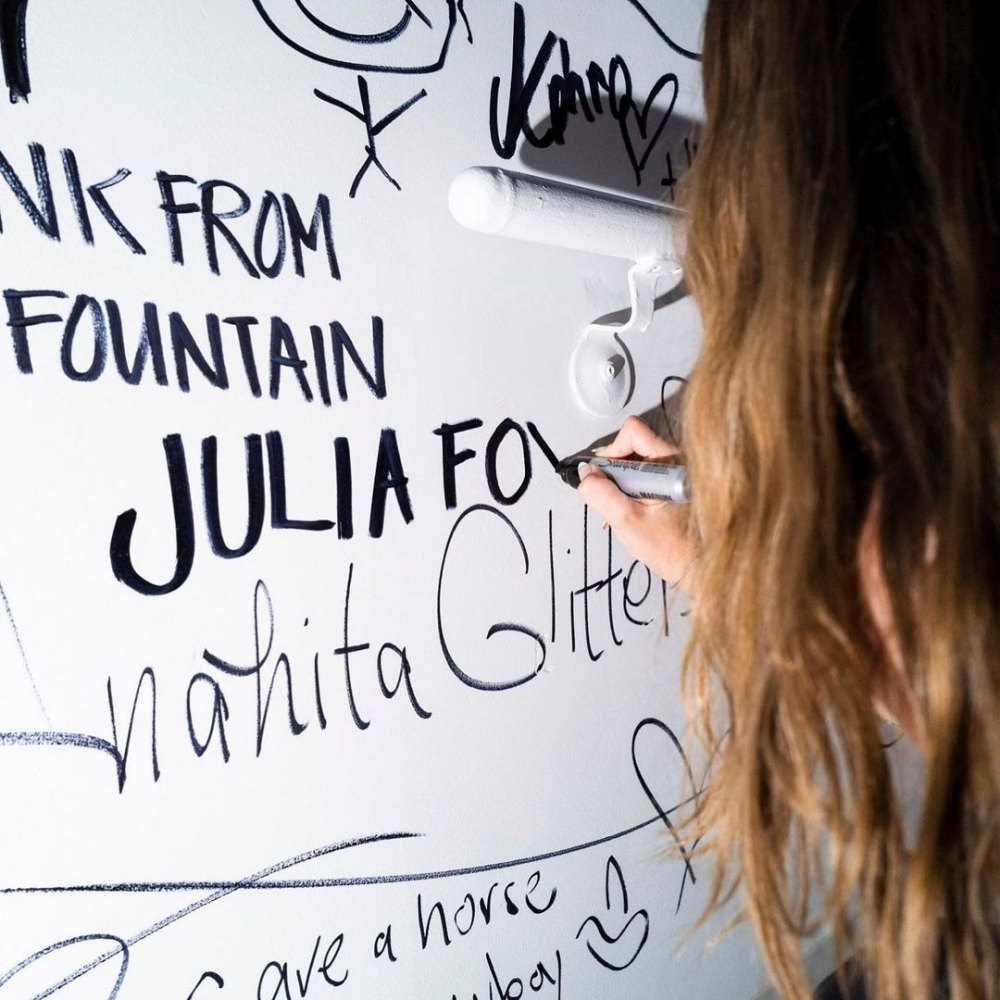 Kohna
NK FROM
FOUNTAIN
JULIA FO
nahita Glitter
ave a horse